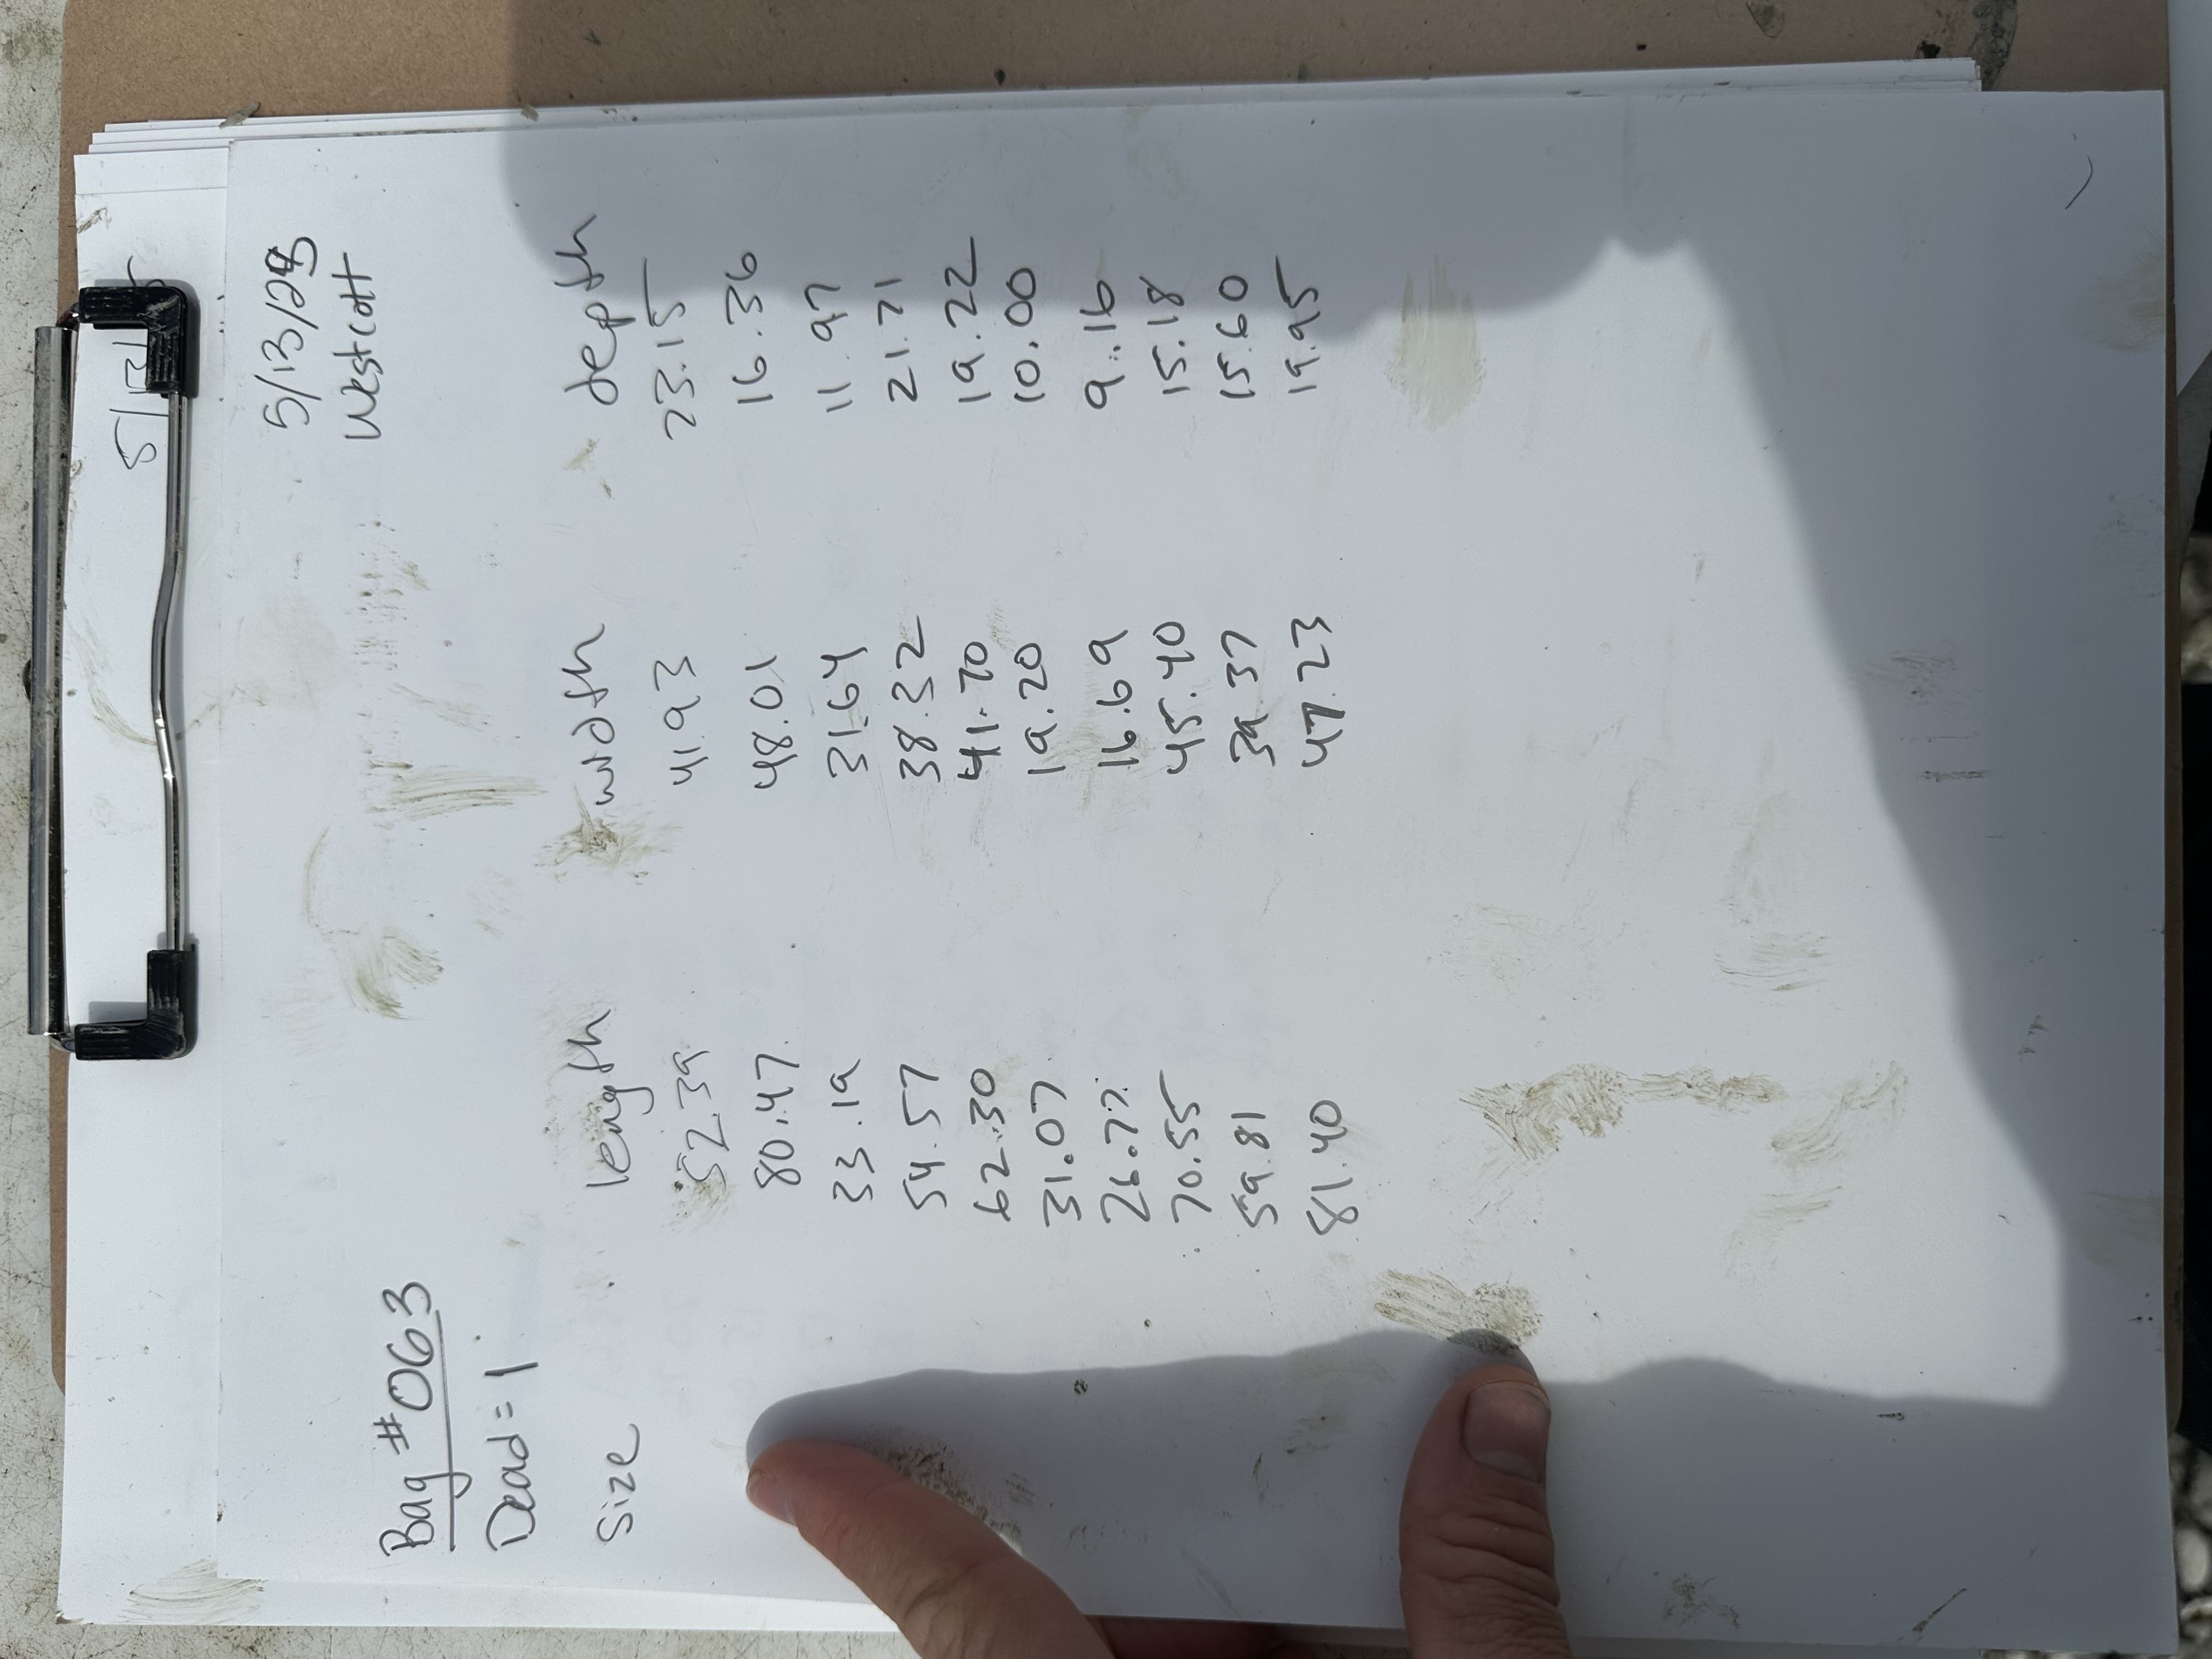 5/13/25
Westcott
Bag #063
Dead = 1
Size length width depth
52.39 41.93 23.15
80.47 48.01 16.36
33.19 31.64 11.97
54.57 38.32 21.71
62.30 41.70 19.22
31.07 19.20 10.00
26.77 16.69 9.16
70.55 45.40 15.18
59.81 39.37 15.60
81.40 47.23 19.95